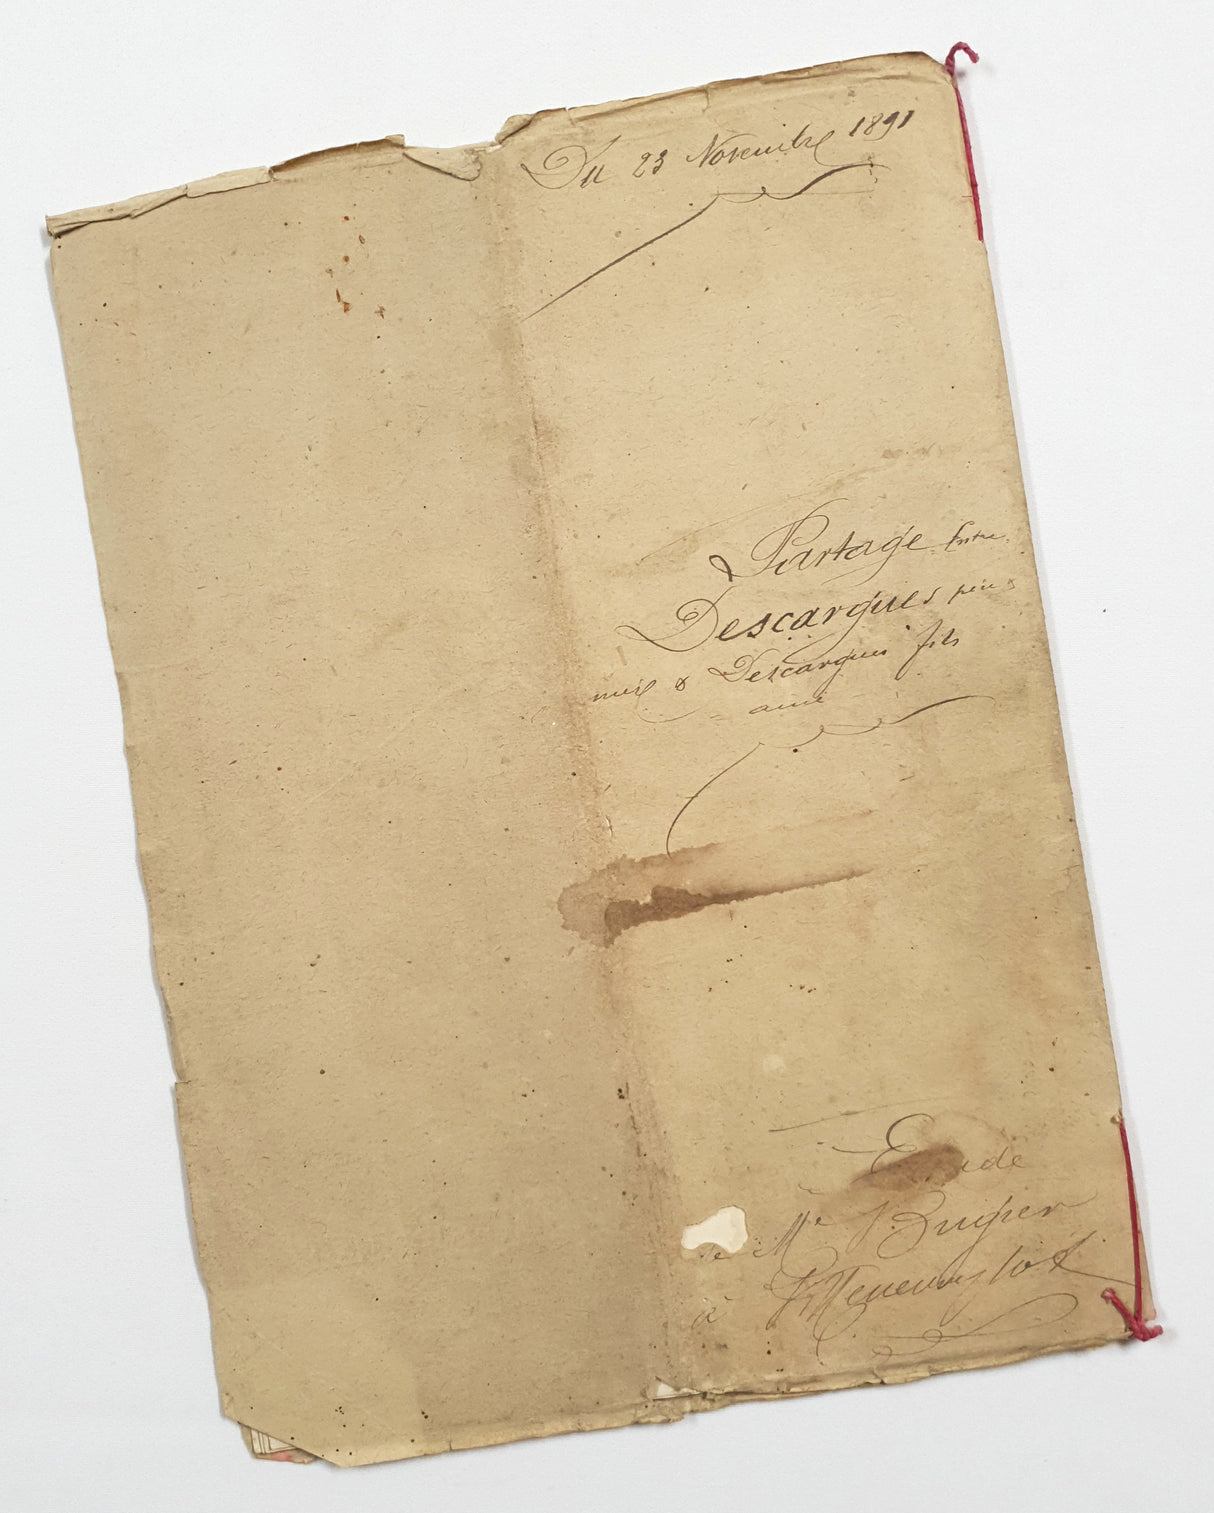 Du 23 Novembre 1891
Partage Entre
Descargues père &
mère & Descargues fils
ainé
Etude
de Me Bugier
à Villeneuve s/ Lot